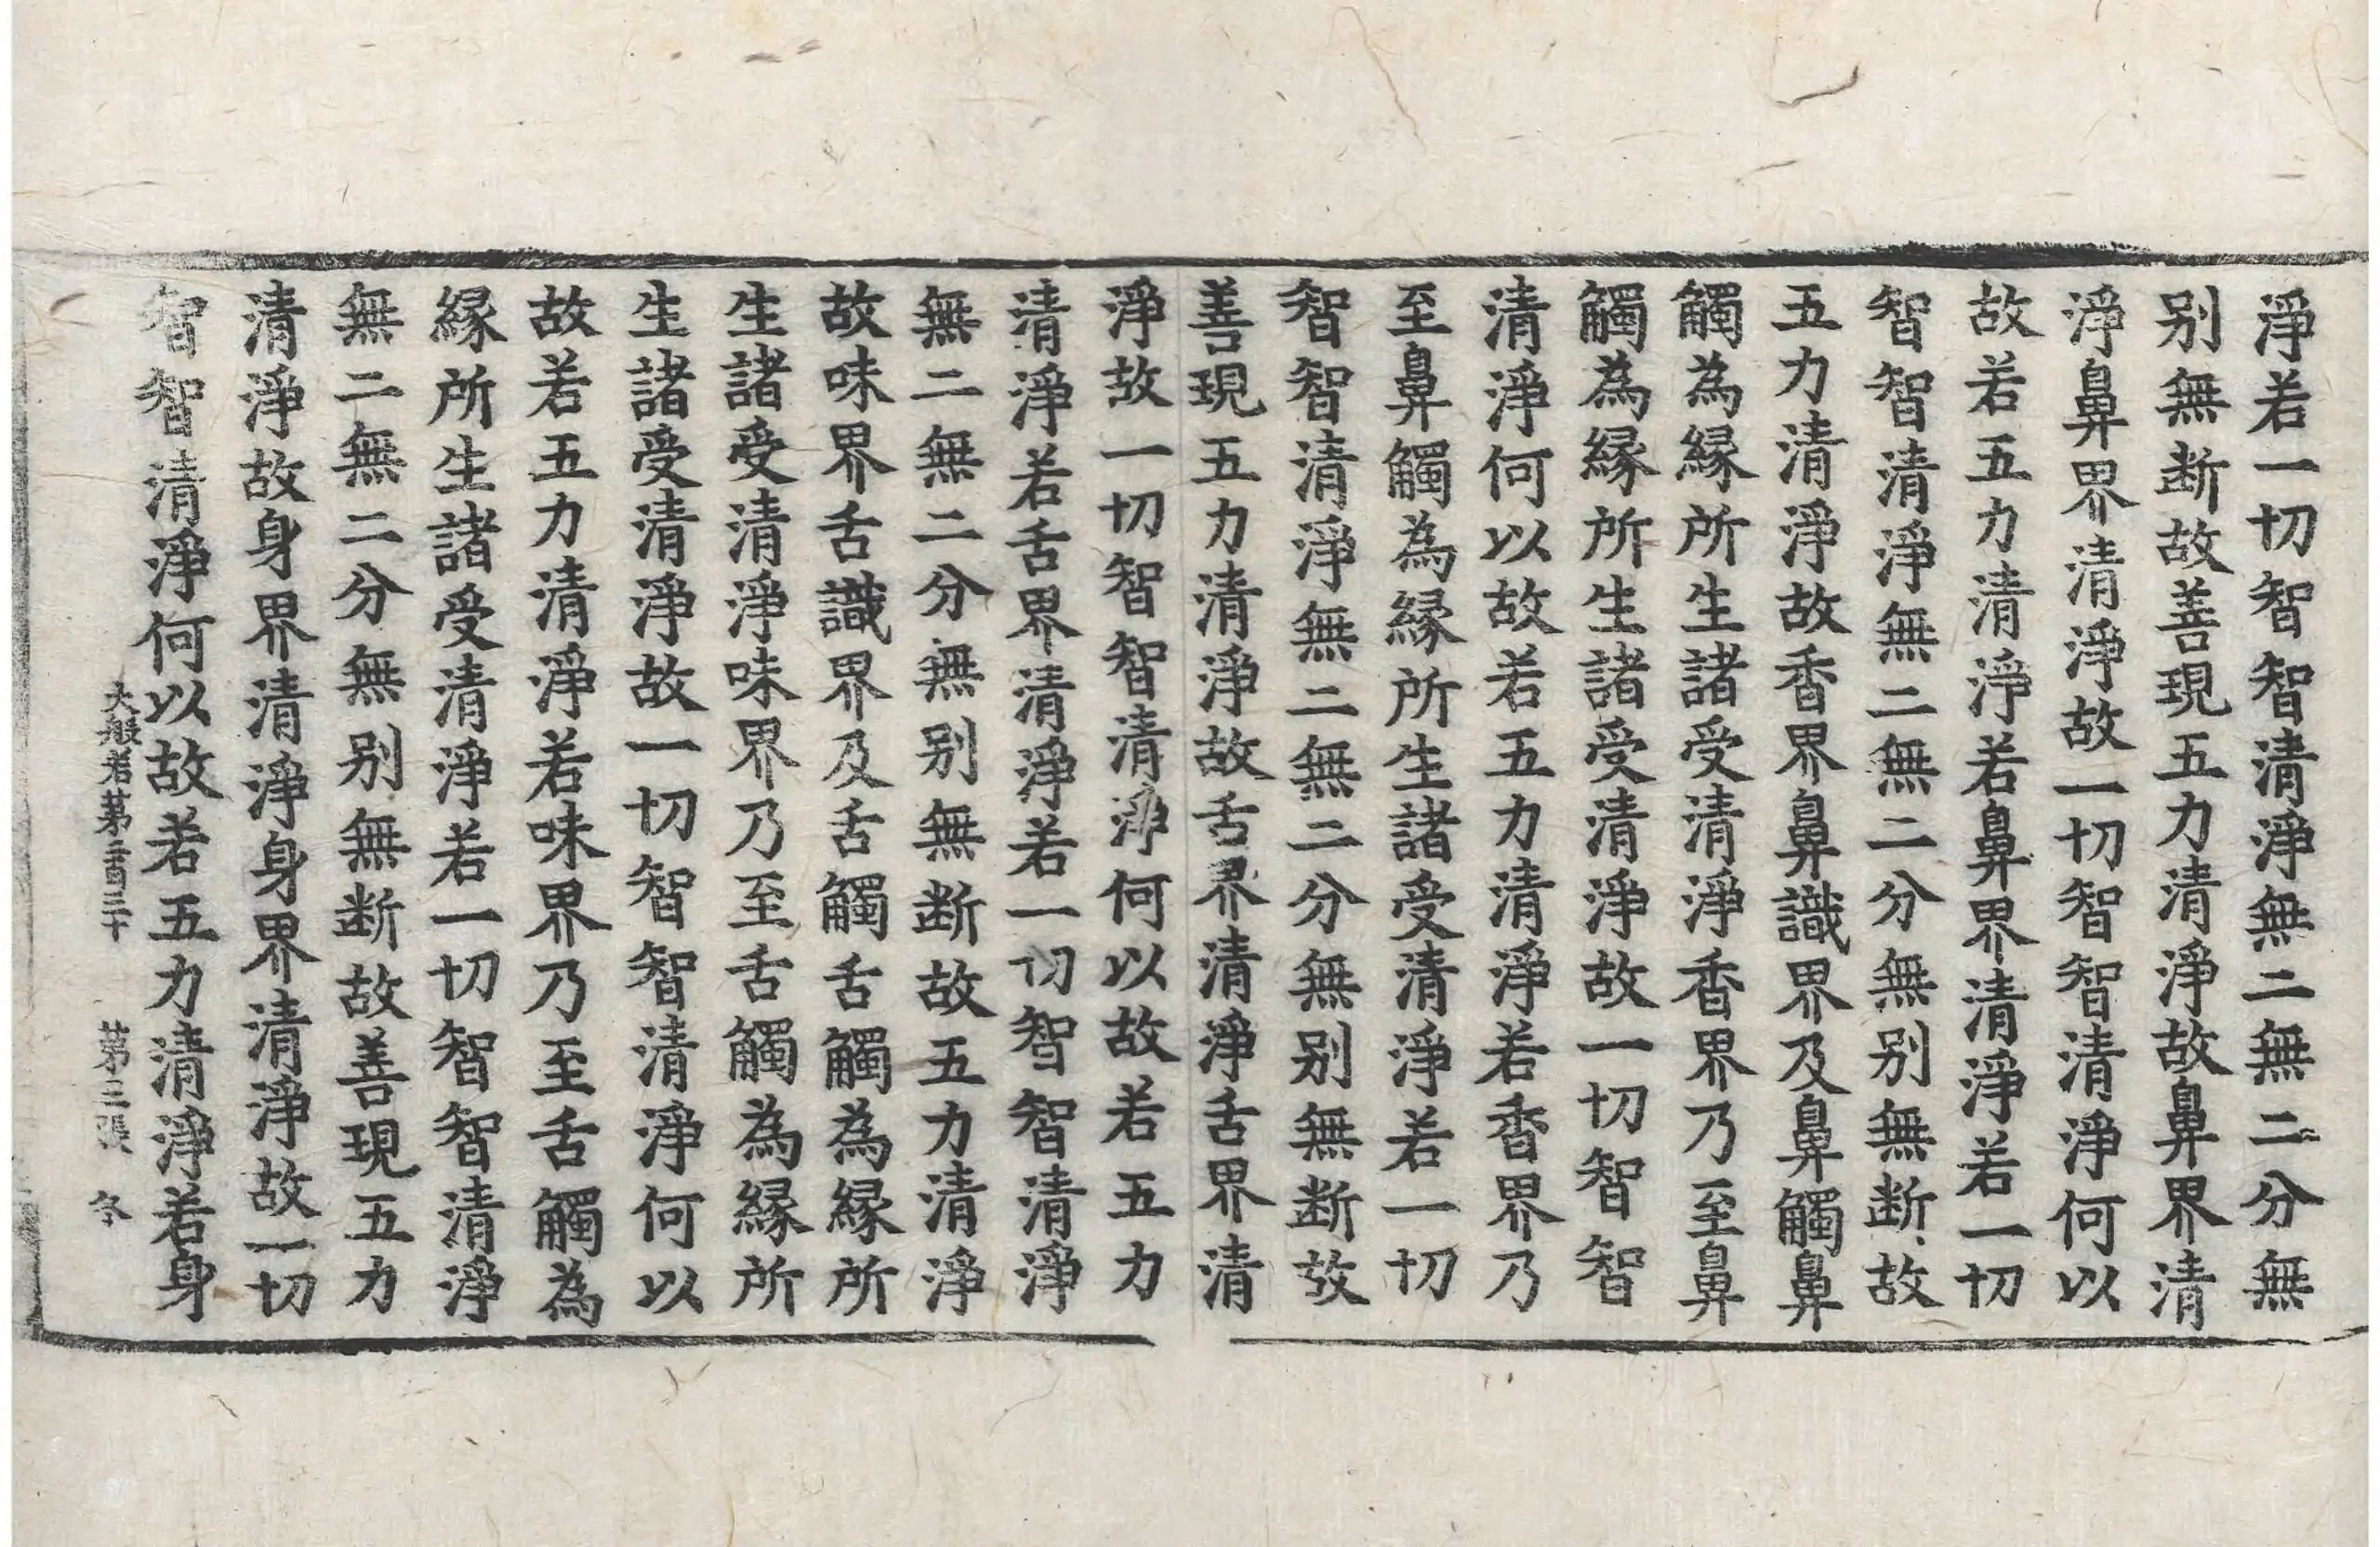 淨若一切智智清淨無二無二分無
别無断故善現五力清淨故鼻界清
淨鼻界清淨故一切智智清淨何以
故若五力清淨若鼻界清淨若一切
智智清淨無二無二分無别無断故
五力清淨故香界鼻識界及鼻觸鼻
觸為縁所生諸受清淨香界乃至鼻
觸為縁所生諸受清淨故一切智智
清淨何以故若五力清淨若香界乃
至鼻觸為縁所生諸受清淨若一切
智智清淨無二無二分無别無断故
善現五力清淨故舌界清淨舌界清
淨故一切智智清淨何以故若五力
清淨若舌界清淨若一切智智清淨
無二無二分無别無断故五力清淨
故味界舌識界及舌觸舌觸為縁所
生諸受清淨味界乃至舌觸為縁所
生諸受清淨故一切智智清淨何以
故若五力清淨若味界乃至舌觸為
縁所生諸受清淨若一切智智清淨
無二無二分無别無断故善現五力
清淨故身界清淨身界清淨故一切
智智清淨何以故若五力清淨若身
大般若第二百三十 第三張 冬